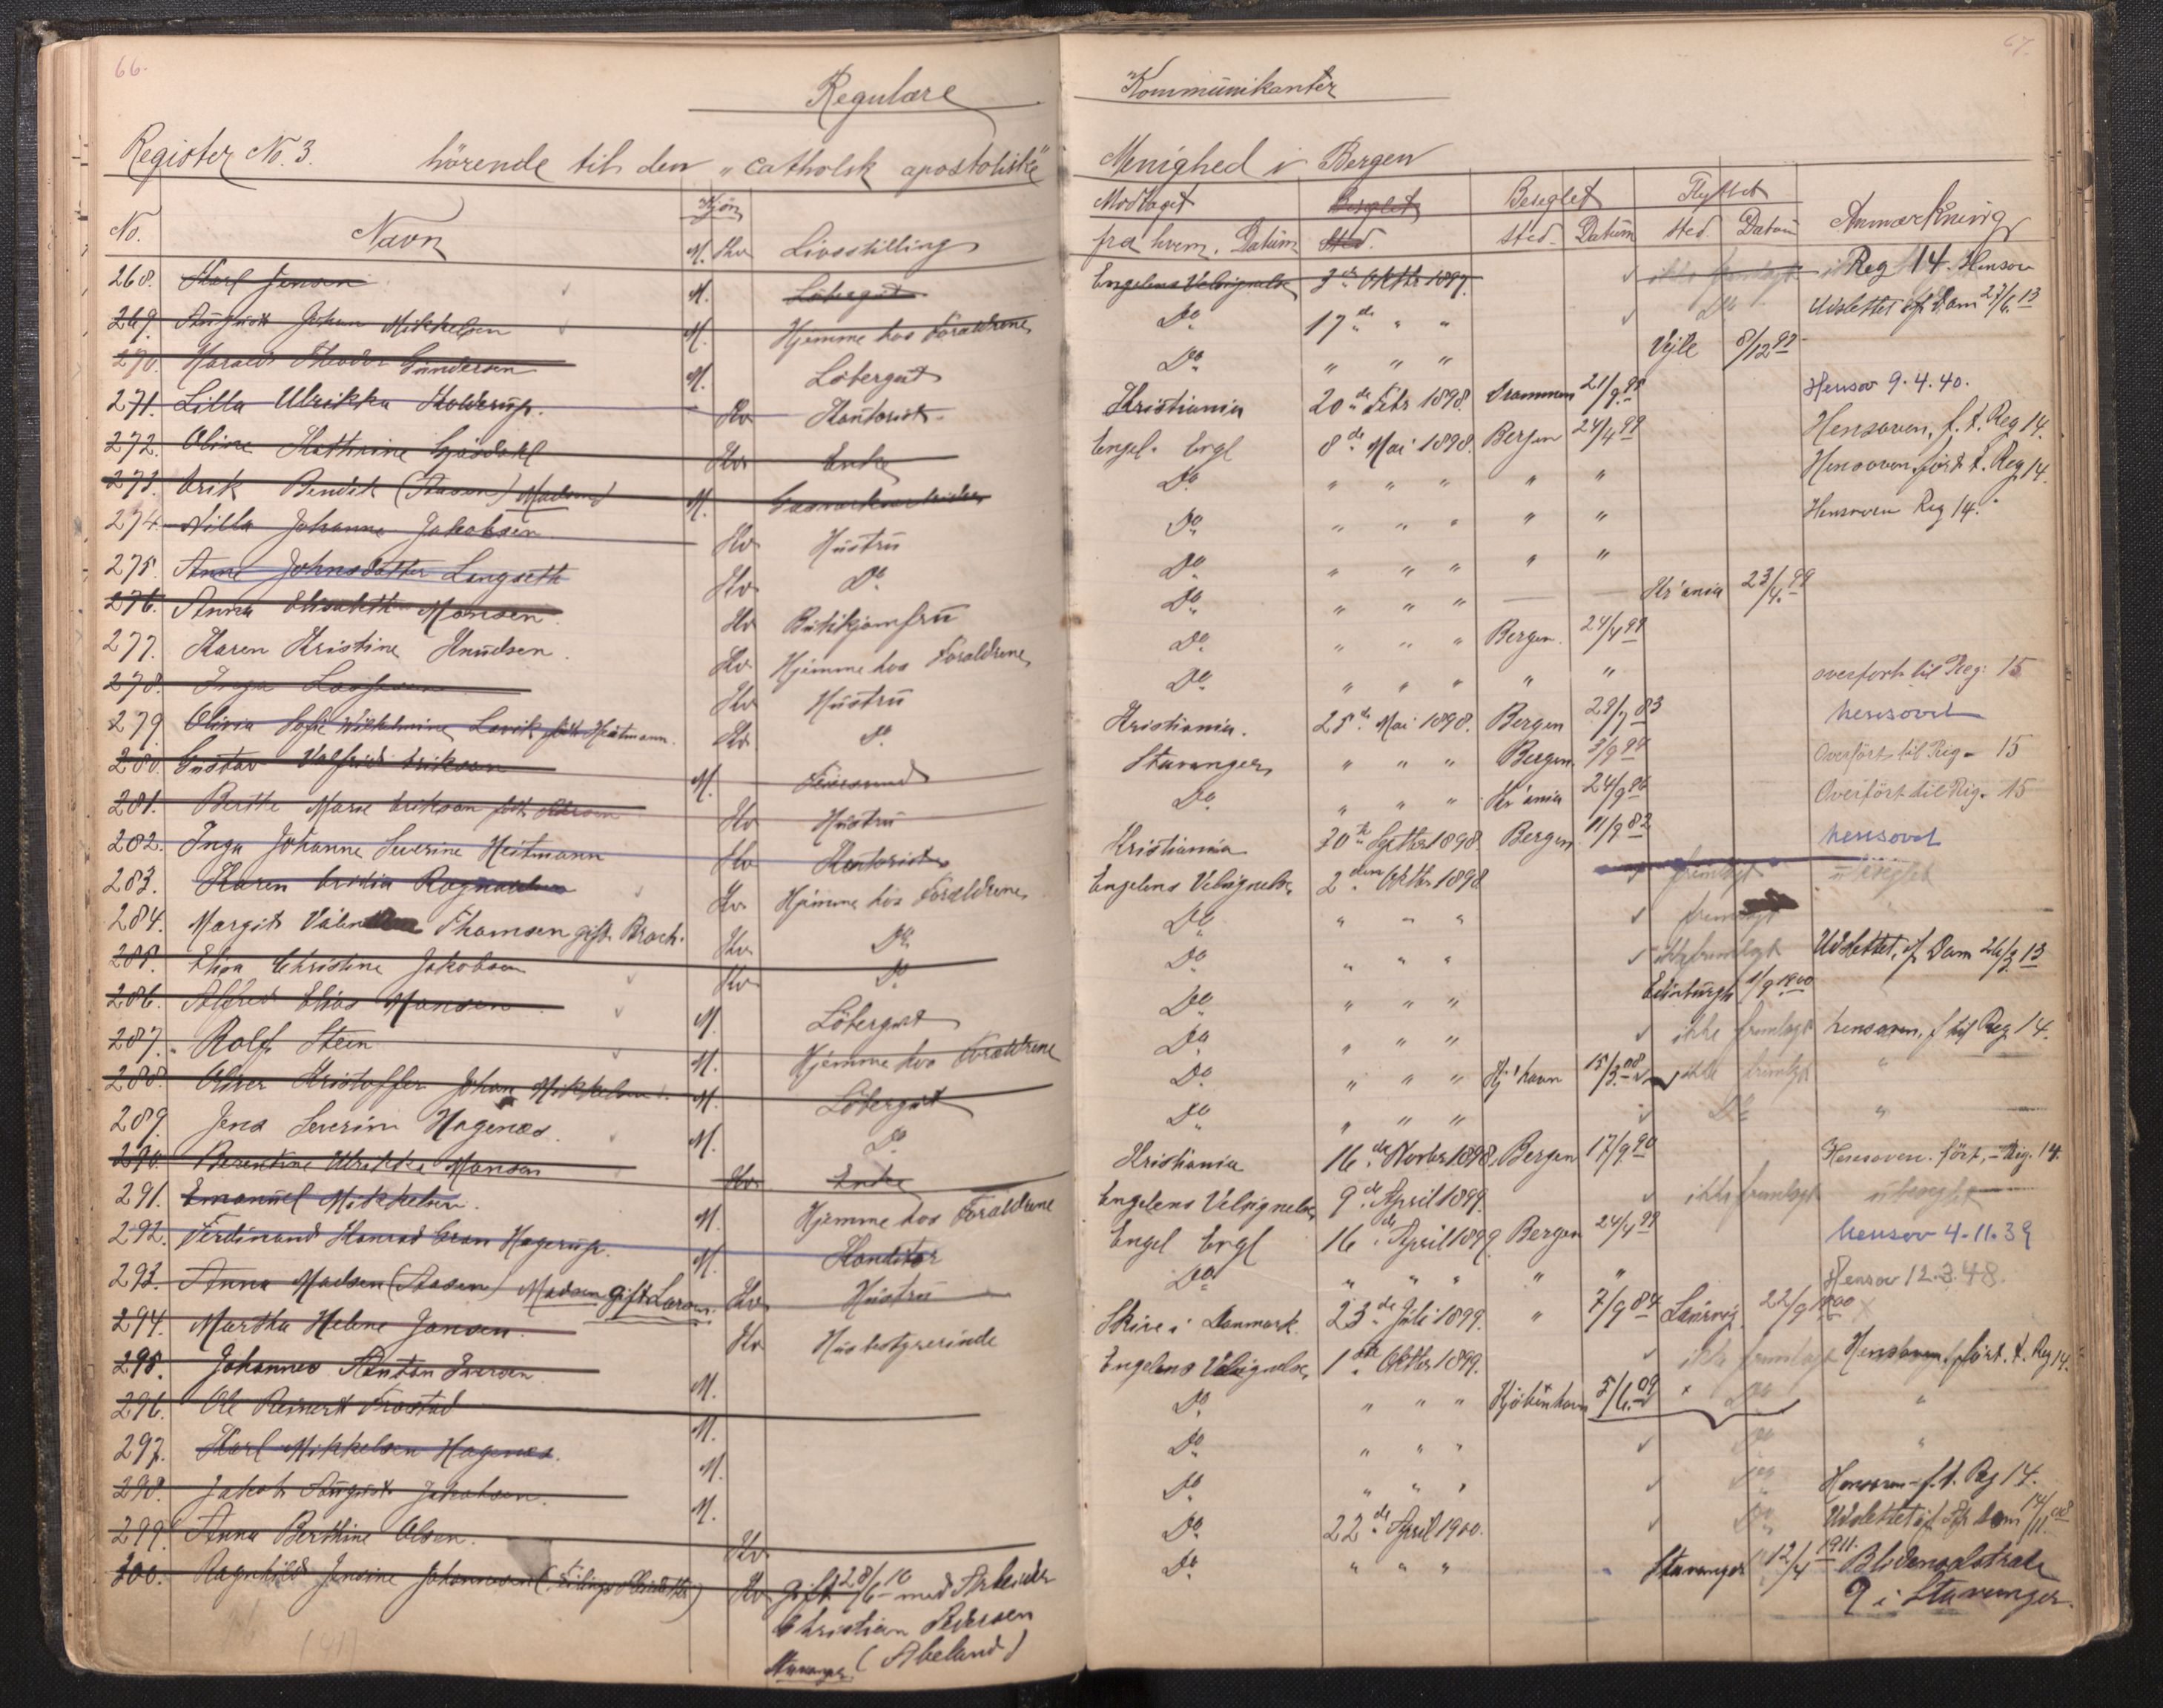 66.
67.
Regulære Kommunikanter
Register No. 3. hörende til den „catholsk apostoliske" Menighed i Bergen
No. Navn Kjön Livsstilling Modtaget Beseglet Beseglet Flyttet Anmærkning
M. Kv. fra hvem. Datum Sted. sted. Datum sted. Datum
268. Karl Jensen M. Löbergut Engelens Velsignelse 3de Oktbr 1897. ikke fremlagt Reg 14. Hensov
269. August Johan Mikkelsen M. Hjemme hos Forældrene Do 17de " " Do Udslettet 27/6 13
270. Harald Theodor Gundersen M. Löbergut Do " " " Vejle 8/12 97
271. Lilla Ulrikka Holdrup. Kv Kontorist. Kristiania 20de Febr 1898. Drammen 21/9 95 Hensov 9.4.40.
272. Oline Kathrine Gjösdahl Kv Enke Engel. Ergl 8de Mai 1898. Bergen 24/4 99 Hensoven, f. t. Reg 14.
273. Erik Bendik (Aasen) Madsen M. Gasværksarbeider Do " " " " " Hensoven, fört t. Reg 14.
274. Nilla Johanne Jakobsen Kv Hustru Do " " " " " Hensoven Reg 14.
275. Anne Johnsdatter Langseth Kv Do Do " " " " "
276. Anna Elisabeth Monsen. Kv Butikjomfru Do " " " — Kr'ania 23/4 99
277. Karen Kristine Knudsen. Kv Hjemme hos Forældrene Do " " " Bergen. 24/4 99
278. Inga Kv Hustru Do " " " " " overfort til Reg: 15
279. Olivia Sofie Wilhelmine Lavik född Heitmann. Kv Do Kristiania. 25de Mai 1898. Bergen 29/7 83 hensovet
280. Gustav Valfried Erikson M. Stavanger " " " Bergen. Overfört til Reg. 15
281. Berthe Marie Erikson Kv Hustru Do " " " Kr'ania 24/9 86 Overfört til Reg. 15
282. Inga Johanne Severine Heitmann Kv Kontorist Kristiania 30te Septbr 1898 Bergen 11/9 82 hensovet
283. Karen Kv Hjemme hos Forældrene Engelens Velsignelse 2den Oktbr 1898 fremlagt ubeseglet
284. Margit Thomsen gift Brach. Kv Do Do " " " fremlagt
285. Elisa Christine Jakobsen Kv Do Do " " " ikke fremlagt Udslettet, f. Dam 26/3 13
286. Alfred Elias Monsen M. Löbergut Do " " " Edinburgh 1/9 1900
287. Rolf Steen M. Hjemme hos Forældrene Do " " " ikke fremlagt hensoven, f til Reg 14.
288. Oliver Kristoffer Johan Mikkelsen. M. Löbergut Do " " " Kj'havn 15/3 08 ikke fremlagt "
289. Jens Severin Hagenæs. M. Do Do " " " Do "
290. Berentine Ulrikke Monsen Kv. Enke Kristiania 16de Novbr 1898. Bergen 17/9 90 Hensoven. fört, – Reg. 14.
291. Emanuel Mikkelsen. M. Hjemme hos Forældrene Engelens Velsignelse 9de April 1899. ikke fremlagt ubeseglet
292. Ferdinand Konrad Gran Hagerup. M. Konditor Engel Ergl 16de April 1899. Bergen 24/4 99 hensov 4-11.39
293. Anna Madsen (Aasen) Madsen gift Larsen. Kv Hustru Do " " " " " Hensov 12.3.48.
294. Martha Helene Jansen. Kv Husbestyrerinde Skive i Danmark 23de Juli 1899. " 7/9 84 Laurvig. 22/9 1900
295. Johannes Anton Iversen M. Engelens Velsignelse, 1ste Oktbr 1899. ikke fremlagt Hensoven, fört. t. Reg 14.
296. Ole Reinert Frostad M. Do " " " Kjöbenhavn 5/6 09 Do "
297. Karl Mikkelsen Hagenæs. M. Do " " " Do "
298. Jakob August Jakobsen. M. Do " " " Do Hensoven – f. t. Reg 14.
299. Anna Berthine Olsen. Kv. Do 22de April 1900. Do Udslettet 14/11 08
300. Ragnhild Jensine Johannesen Kv gift 28/6 10 med Arbeider Do " " " Stavanger 12/4 1911. Blidensolstrade
Christian Pedersen 9 i Stavanger.
Stavanger. (Abeland)
(41)